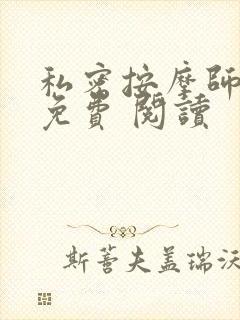 私密按摩師
免費 閱讀
斯蒈夫盖瑞沃